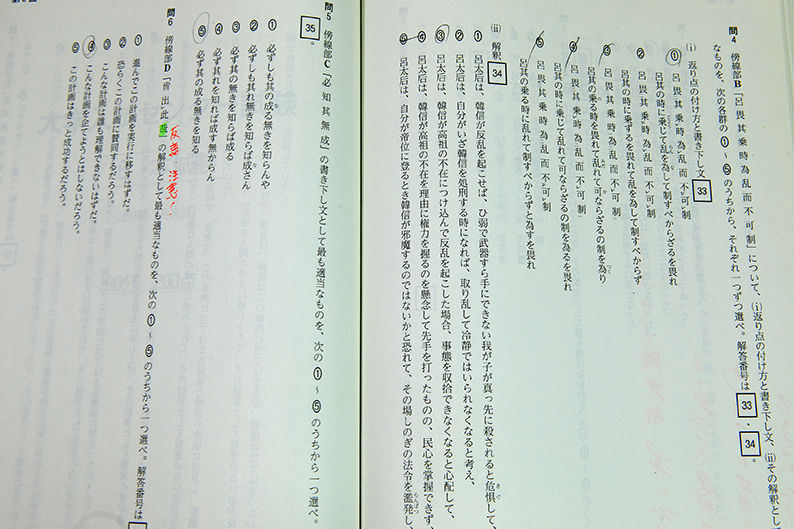 問4 傍線部B「呂畏其乗時為乱而不可制」について、(ⅰ)返り点の付け方と書き下し文、(ⅱ)その解釈とし
なものを、次の各群の①～⑤のうちから、それぞれ一つずつ選べ。解答番号は 33 ・ 34 。
(ⅰ) 返り点の付け方と書き下し文 33
① 呂畏其乗時為乱而不可制
呂其の時に乗じて乱を為して制すべからざるを畏れ
② 呂畏其乗時為乱而不可制
呂其の時に乗ずるを畏れて乱を為して制すべからず
③ 呂畏其乗時為乱而不可制
呂其の乗る時を畏れて乱れて可ならざるの制を為り
④ 呂畏其乗時為乱而不可制
呂其の時に乗じて乱れて可ならざるの制を為るを畏れ
⑤ 呂畏其乗時為乱而不可制
呂其の乗る時に乱れて制すべからずと為すを畏れ
(ⅱ) 解釈 34
① 呂太后は、韓信が反乱を起こせば、ひ弱で武器すら手にできない我が子が真っ先に殺されると危惧して、
② 呂太后は、自分がいざ韓信を処刑する時になれば、取り乱して冷静ではいられなくなると考え、
③ 呂太后は、韓信が高祖の不在につけ込んで反乱を起こした場合、事態を収拾できなくなると心配して、
④ 呂太后は、韓信が高祖の不在を理由に権力を握るのを懸念して先手を打ったものの、民心を掌握できず、
⑤ 呂太后は、自分が帝位に登るとき韓信が邪魔するのではないかと恐れて、その場しのぎの法令を濫発し、
問5 傍線部C「必知其無成」の書き下し文として最も適当なものを、次の①～⑤のうちから一つ選べ。
35 。
① 必ずしも其の成る無きを知らんや
② 必ずしも其れ無きを知らば成さん
③ 必ず其の無きを知らば成る
④ 必ず其れを知れば成す無からん
⑤ 必ず其の成る無きを知る
問6 傍線部D「肯出此」の解釈として最も適当なものを、次の①～⑤のうちから一つ選べ。解答番号は
反語 注意!
① 進んでこの計画を実行に移すはずだ。
② 恐らくこの計画に賛同するだろう。
③ こんな計画は誰も理解できないはずだ。
④ こんな計画を企てようとはしないだろう。
⑤ この計画はきっと成功するだろう。